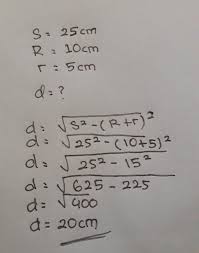 S = 25cm
R = 10cm
r = 5cm
d = ?
d = √S² - (R + r)²
d = √25² - (10+5)²
d = √25² - 15²
d = √625 - 225
d = √400
d = 20cm